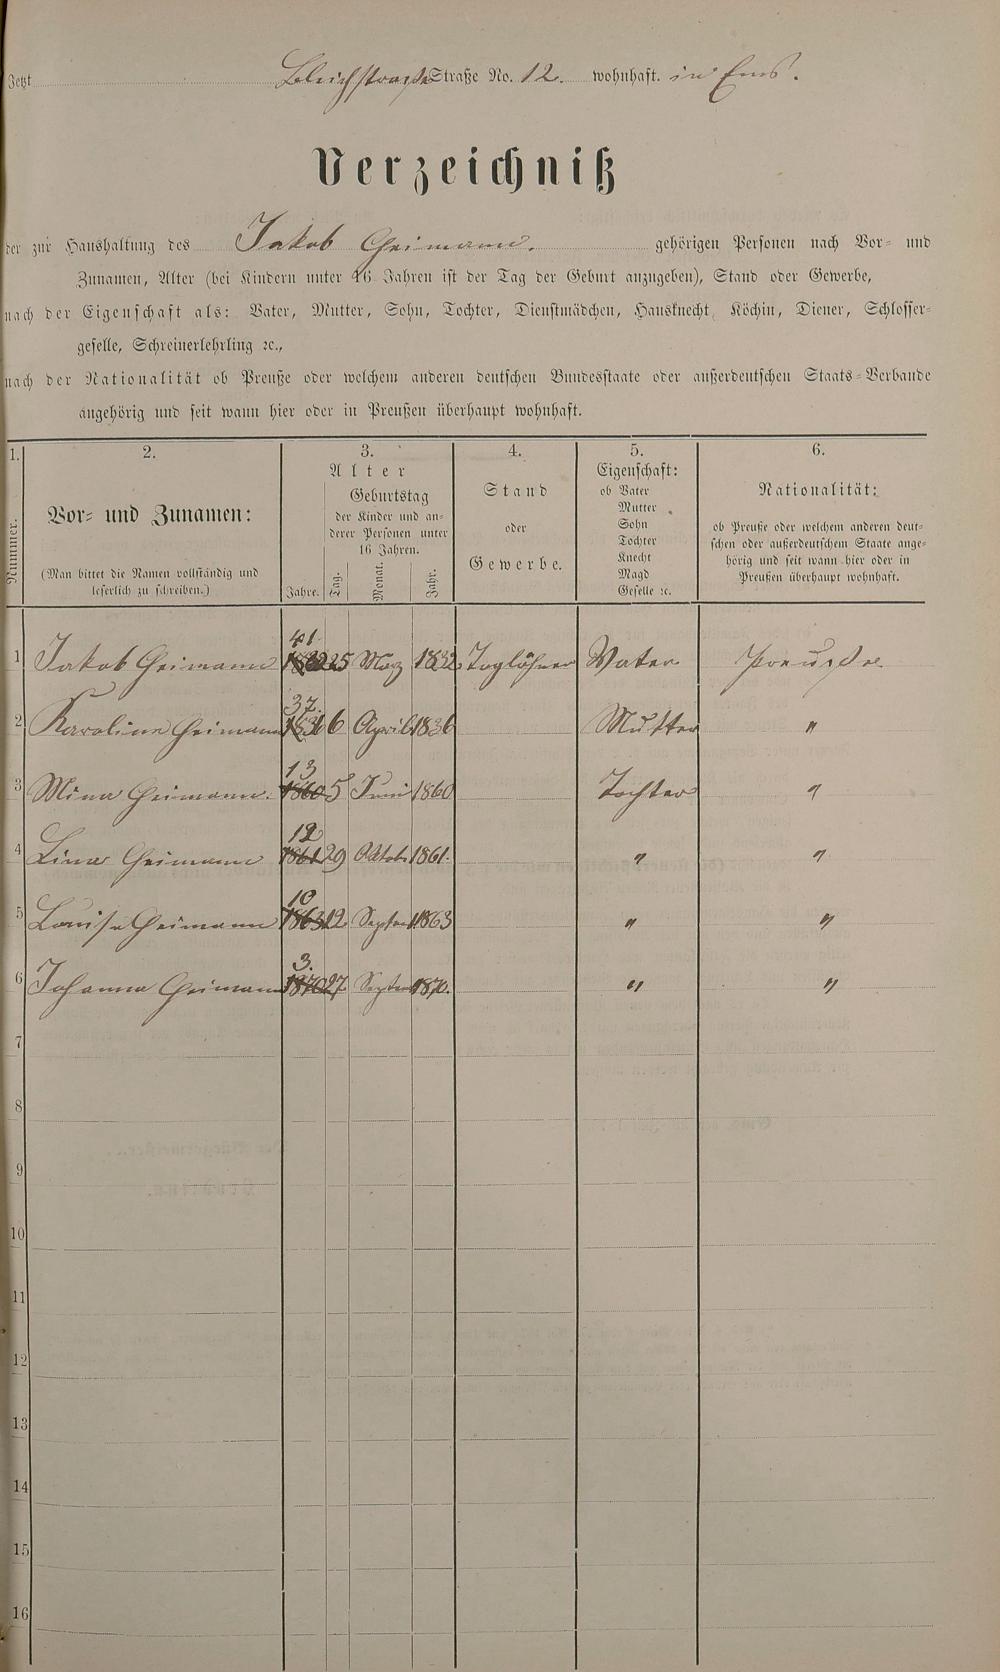 Jetzt Bleichstraße Straße No. 12. wohnhaft. in Ems.
Verzeichniß
der zur Haushaltung des Jakob Heimann. gehörigen Personen nach Vor- und
Zunamen, Alter (bei Kindern unter 16 Jahren ist der Tag der Geburt anzugeben), Stand oder Gewerbe,
nach der Eigenschaft als: Vater, Mutter, Sohn, Tochter, Dienstmädchen, Hausknecht, Köchin, Diener, Schlosser-
geselle, Schreinerlehrling ꝛc.,
nach der Nationalität ob Preuße oder welchem anderen deutschen Bundesstaate oder außerdeutschen Staats-Verbande
angehörig und seit wann hier oder in Preußen überhaupt wohnhaft.
1. 2. 3. 4. 5. 6.
Nummer.
Vor- und Zunamen:
(Man bittet die Namen vollständig und
leserlich zu schreiben.)
Alter
Geburtstag
der Kinder und an-
derer Personen unter
16 Jahren.
Jahre. Tag. Monat. Jahr.
Stand
oder
Gewerbe.
Eigenschaft:
ob Vater
Mutter
Sohn
Tochter
Knecht
Magd
Geselle ꝛc.
Nationalität:
ob Preuße oder welchem anderen deut-
schen oder außerdeutschem Staate ange-
hörig und seit wann hier oder in
Preußen überhaupt wohnhaft.
41.
1 Jakob Heimann 1832 25 März 1832 Taglöhner Vater Preuße.
37.
2 Karoline Heimann 1836 6 April 1836 Mutter "
13
3 Mina Heimann. 1860 5 Juni 1860 Tochter "
12
4 Lina Heimann 1861 29 Oktob 1861. " "
10
5 Louise Heimann 1863 12 Septem 1863 " "
3.
6 Johanna Heimann 1870 27 Septem 1870. " "
7
8
9
10
11
12
13
14
15
16